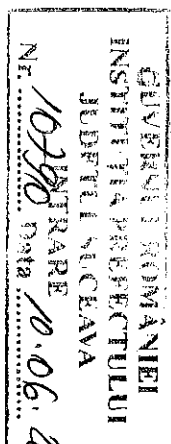 GUVERNUL ROMÂNIEI
INSTITUȚIA PREFECTULUI
JUDEȚUL SUCEAVA
INTRARE
Nr. 10790 Data 10.06.2